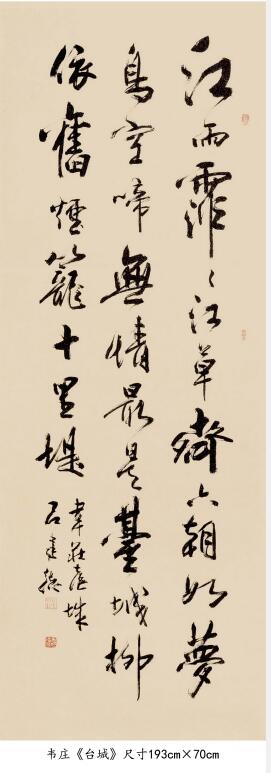 江雨霏々江草齊六朝如夢
鳥空啼無情最是臺城柳
依舊煙籠十里堤
韋莊臺城
韦庄《台城》尺寸193cm×70cm